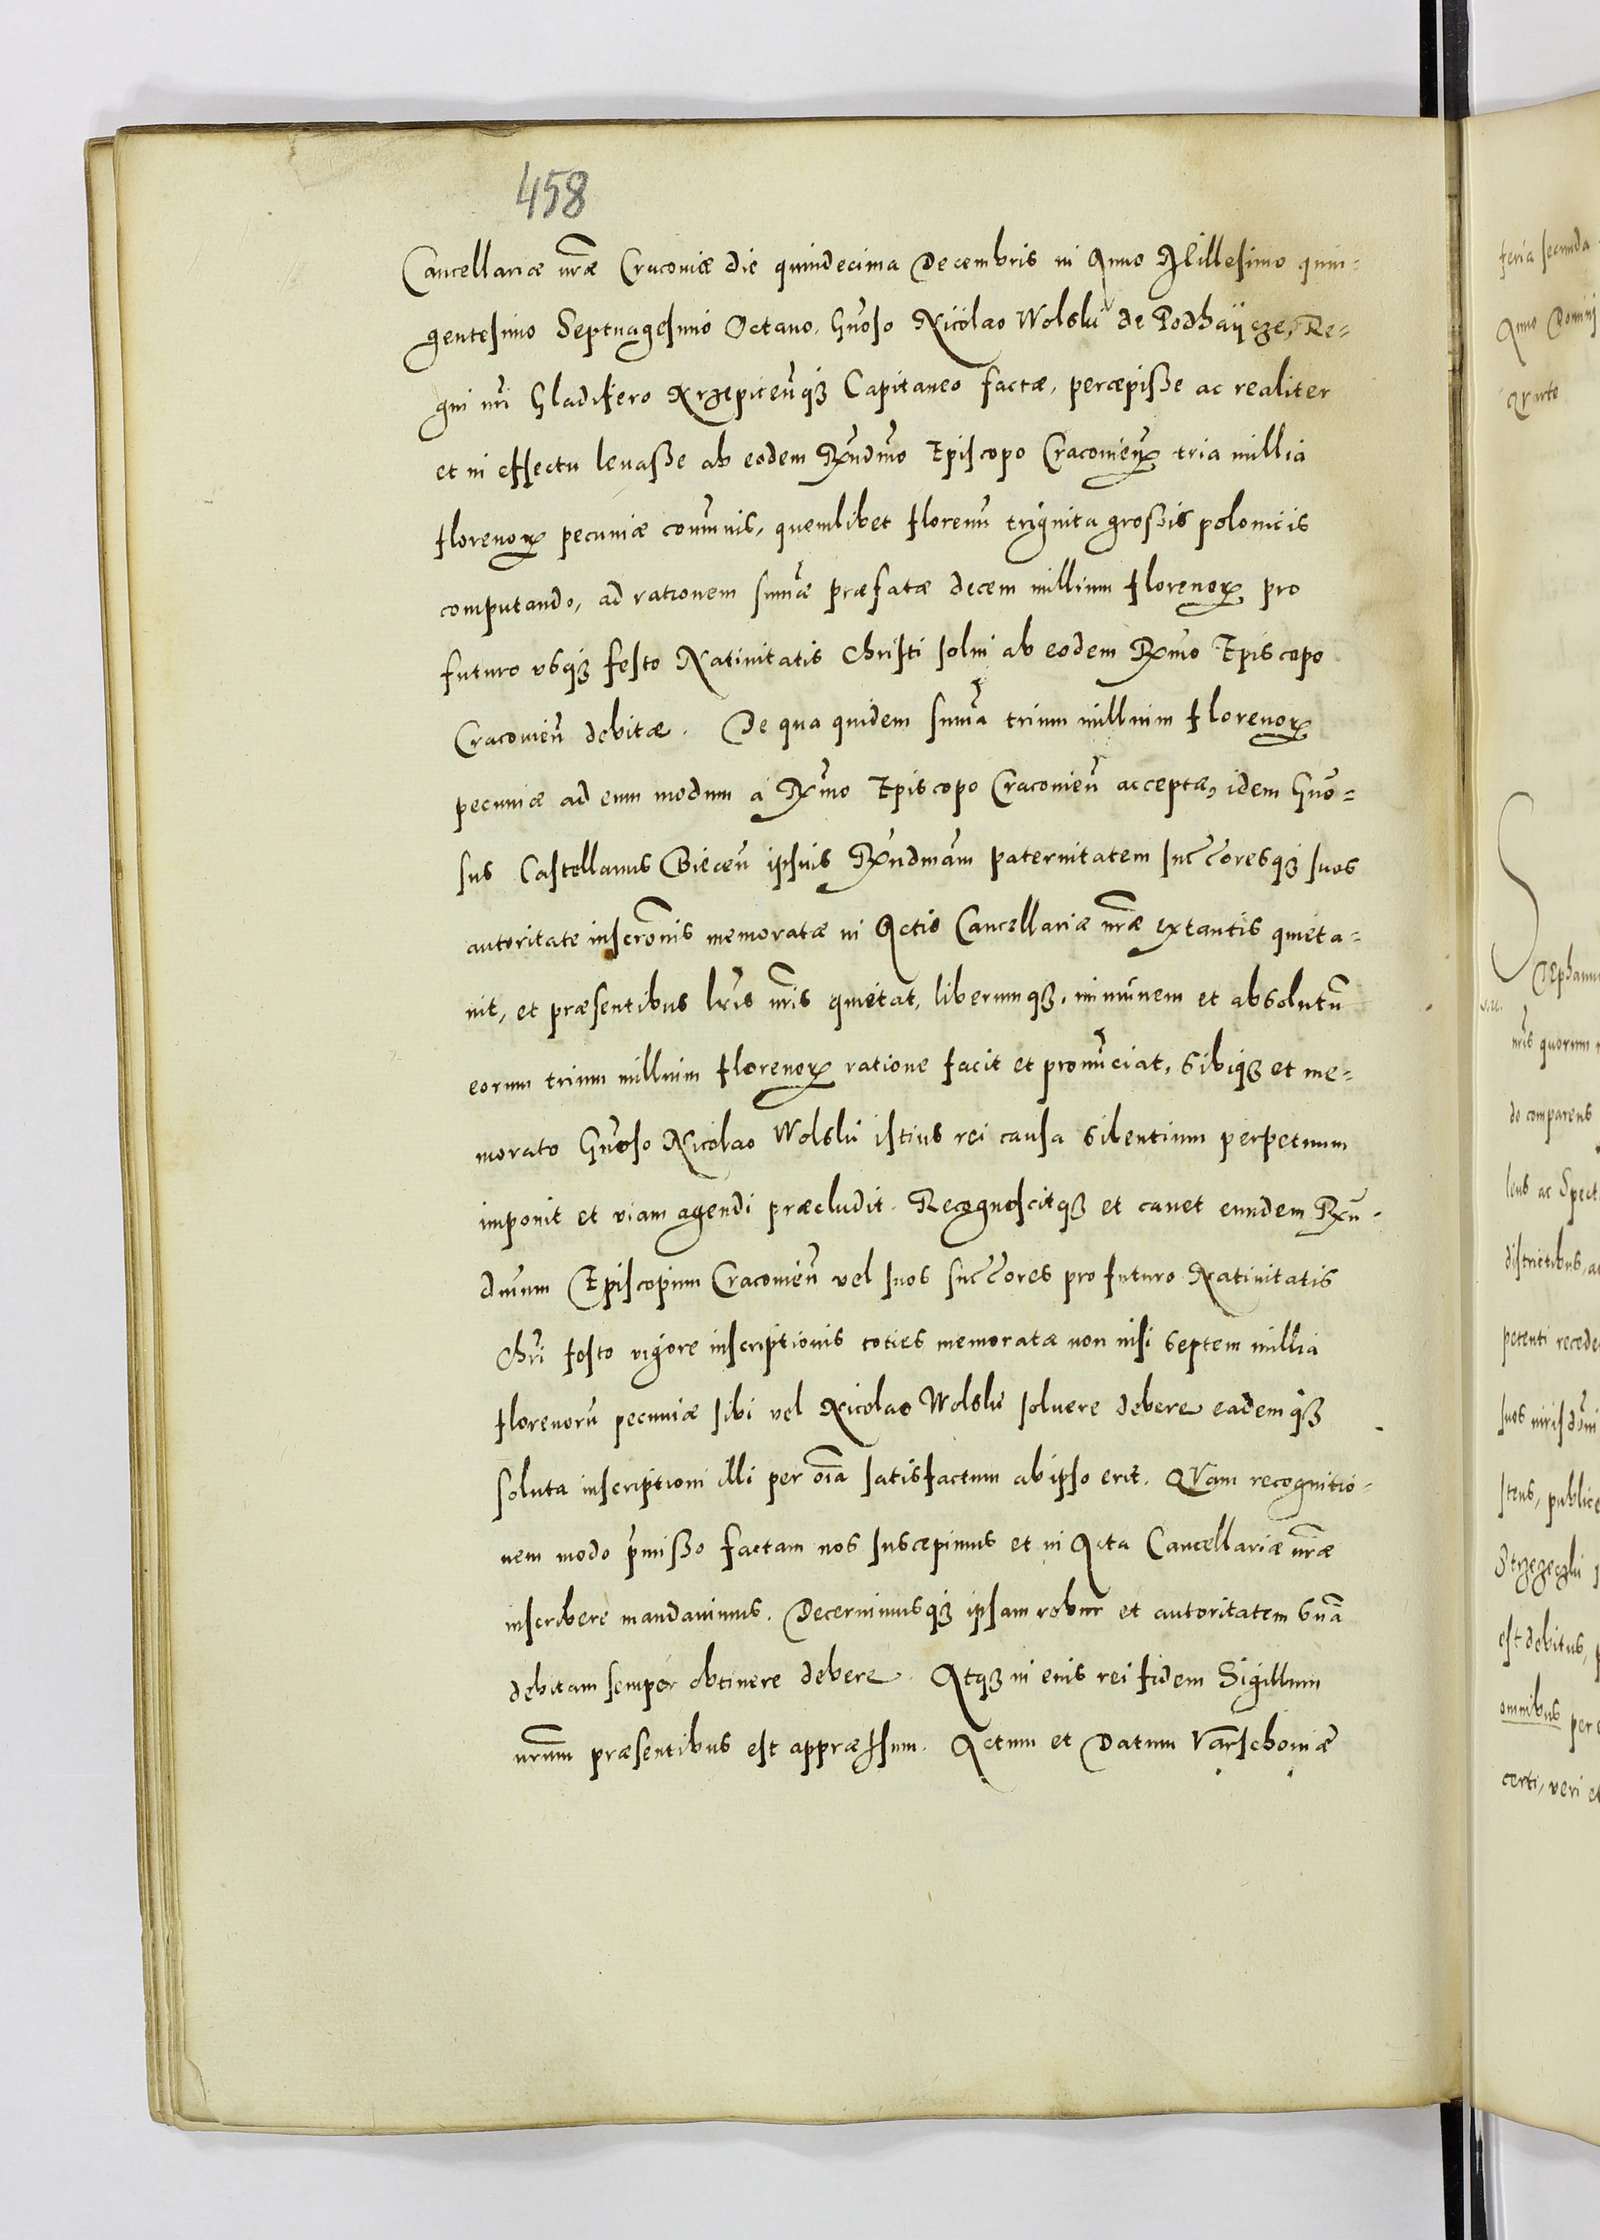 458
Cancellariæ nræ Cracoviæ die quindecima Decembris in Anno Millesimo quin-
gentesimo Septuagesimo Octavo, Gnoso Nicolao Wolski de Podhaijcze, Re-
gni nri Gladifero Krzepiceñqȝ Capitaneo factæ, percæpisse ac realiter
et in effectu levasse ab eodem Rñdmo Episcopo Cracovieñ tria millia
florenoꝝ pecuniæ comũnis, quemlibet florenũ triginta grossis polonicis
computando, ad rationem sum̃æ præfatæ decem millium florenoꝝ pro
futuro usqȝ festo Nativitatis Christi solvi ab eodem Rx̃mo Episcopo
Cracovieñ debitæ. De qua quidem sum̃a trium millium florenoꝝ
pecuniæ ad eum modum à Rx̃mo Episcopo Cracovieñ acceptæ, idem Gño-
sus Castellanus Bieceñ ipsius Rx̃ndmam paternitatem succ̃oresqȝ suos
autoritate inscr̃onis memoratæ in Actis Cancellariæ nræ extantis quieta-
vit, et præsentibus lr̃is nr̃is quietat, liberumqȝ, immunem et absolutũ
eorum trium millium florenoꝝ ratione facit et pronũciat, sibiqȝ et me-
morato Gnoso Nicolao Wolski istius rei causa silentium perpetuum
imponit et viam agendi præcludit. Recognoscitqȝ et cavet eundem Rx̃n-
dmum Episcopum Cracovieñ vel suos succ̃ores pro futuro Nativitatis
Chr̃i festo vigore inscriptionis toties memoratæ non nisi septem millia
florenorũ pecuniæ sibi vel Nicolao Wolski solvere debere eademqȝ
soluta inscriptioni illi per oĩa satisfactum ab ipso erit. Quam recognitio-
nem modo p̃misso factam nos suscepimus et in Acta Cancellariæ nræ
inscribere mandavimus. Decernimusqȝ ipsam robur et autoritatem suã
debitam semper obtinere debere. Atqȝ in eius rei fidem Sigillum
nrum præsentibus est appræssum. Actum et Datum Varschoviæ
feria secunda
Anno Domini
Quarto
Stephanus
nris quorum
do comparens
lens ac Spect
districtibus, a
petenti recede
suos
stens, publice
est debitus,
omnibus per
certi, veri et